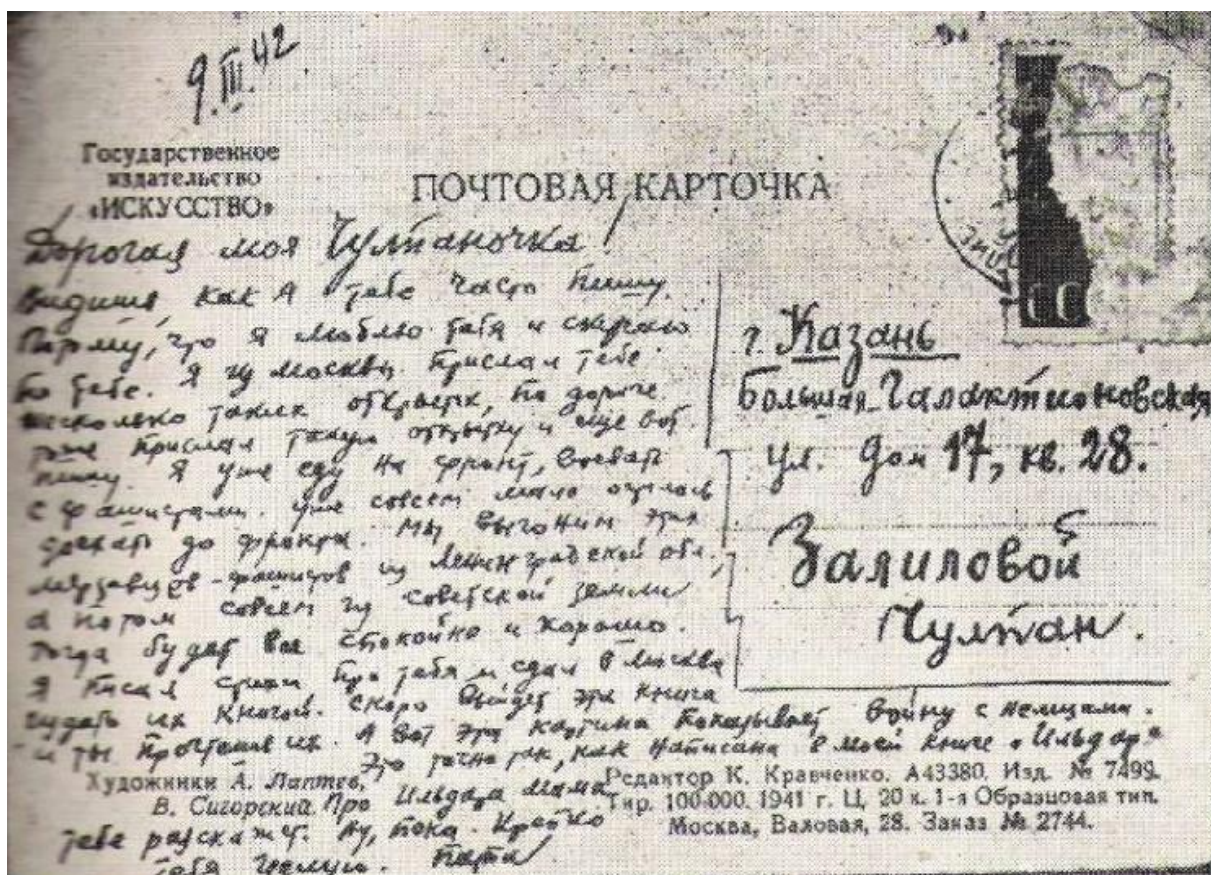 9.III.42
Государственное
издательство
«ИСКУССТВО»
ПОЧТОВАЯ КАРТОЧКА
Дорогая моя Чулпаночка!
Видишь, как я тебе часто пишу.
Потому, что я люблю тебя и скучаю
по тебе. Я из Москвы прислал тебе
несколько таких открыток, по дороге
тоже прислал такую открытку и еще вот
пишу. Я уже еду на фронт, воевать
с фашистами. Уже совсем мало осталось
доехать до фронта. Мы выгоним этих
мерзавцев-фашистов из Ленинградской обл.,
а потом совсем из советской земли
тогда будет все спокойно и хорошо.
Я писал стихи про тебя и сдал в Москве
издать их книгой. Скоро выйдет эта книга
и ты прочтешь их. А вот эта картина показывает войну с немцами.
Это точно так, как написана в моей книге "Ильдар"
Про Ильдара мама
тебе расскажет. Ну, пока. Крепко
тебя целую. Папа
г. Казань
Большая Галактионовская
ул. дом 17, кв. 28.
Залиловой
Чулпан.
Художники А. Лаптев,
В. Сигорский
Редактор К. Кравченко. А43380. Изд. № 7499.
Тир. 100.000. 1941 г. Ц. 20 к. 1-я Образцовая тип.
Москва, Валовая, 28. Заказ № 2744.